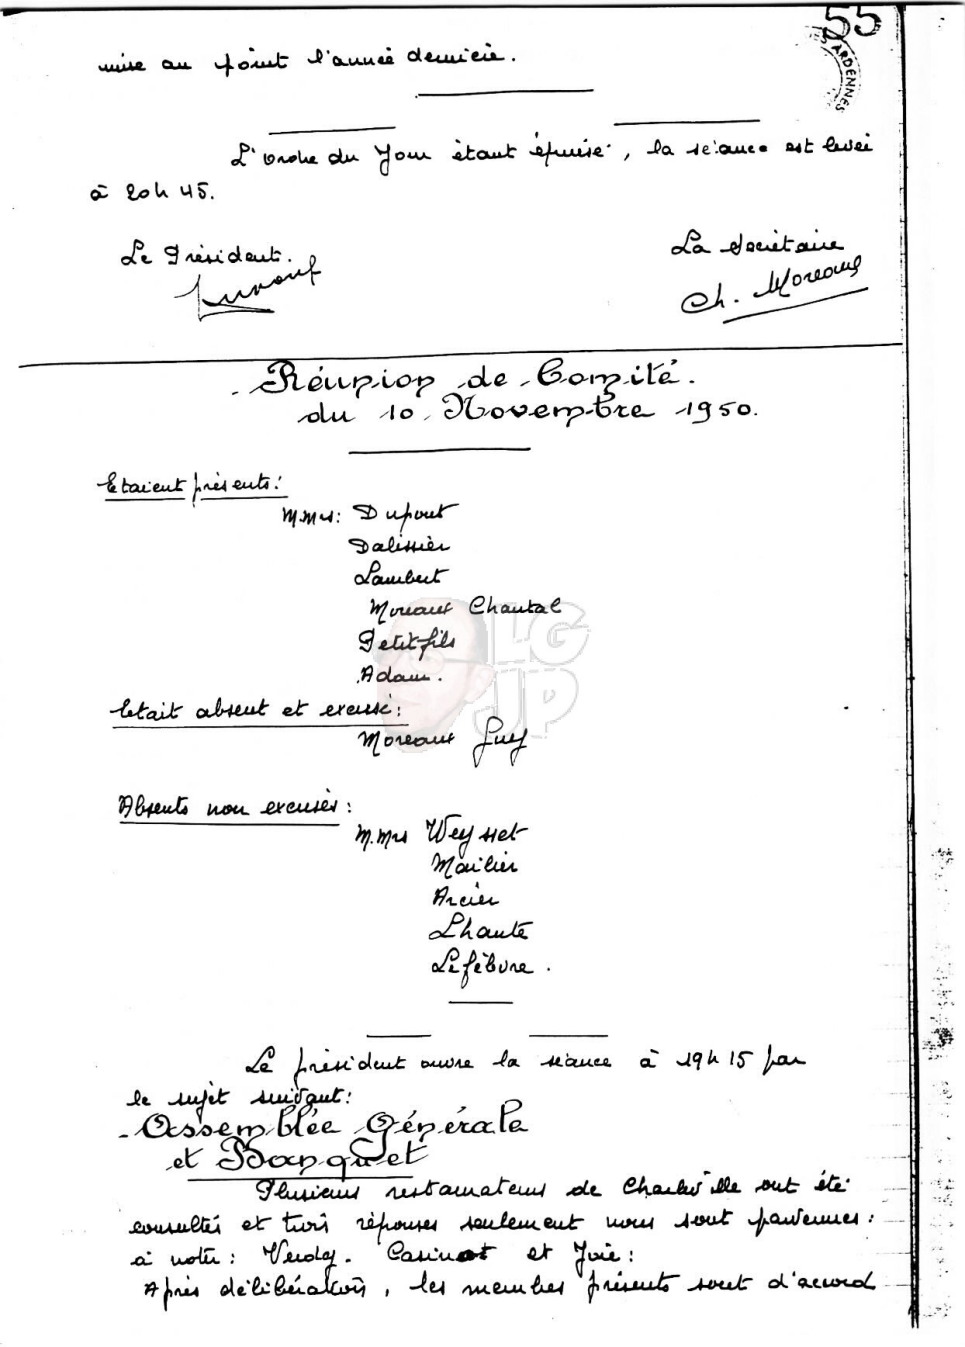 55
ARDENNES
mise au point l'année dernière.
L'ordre du Jour étant épuisé, la séance est levée
à 20h 45.
Le Président.
La Secrétaire
Ch. Moreaux
- Réunion de Comité.
du 10 Novembre 1950.
Etaient présents:
M.Mrs: Dupont
Dalissier
Lambert
Moreaux Chantal
Petitfils
Adam.
Etait absent et excusé:
Moreaux Guy
Absents non excusés:
M.Mrs Weysset
Mailier
Arcier
Lhauté
Lefèbvre.
LG
JP
Le président ouvre la séance à 19h 15 par
le sujet suivant:
- Assemblée Générale
et Banquet
Plusieurs restaurateurs de Charleville ont été
consultés et trois réponses seulement nous sont parvenues:
à noter: Casinot et Joie:
Après délibération, les membres présents sont d'accord